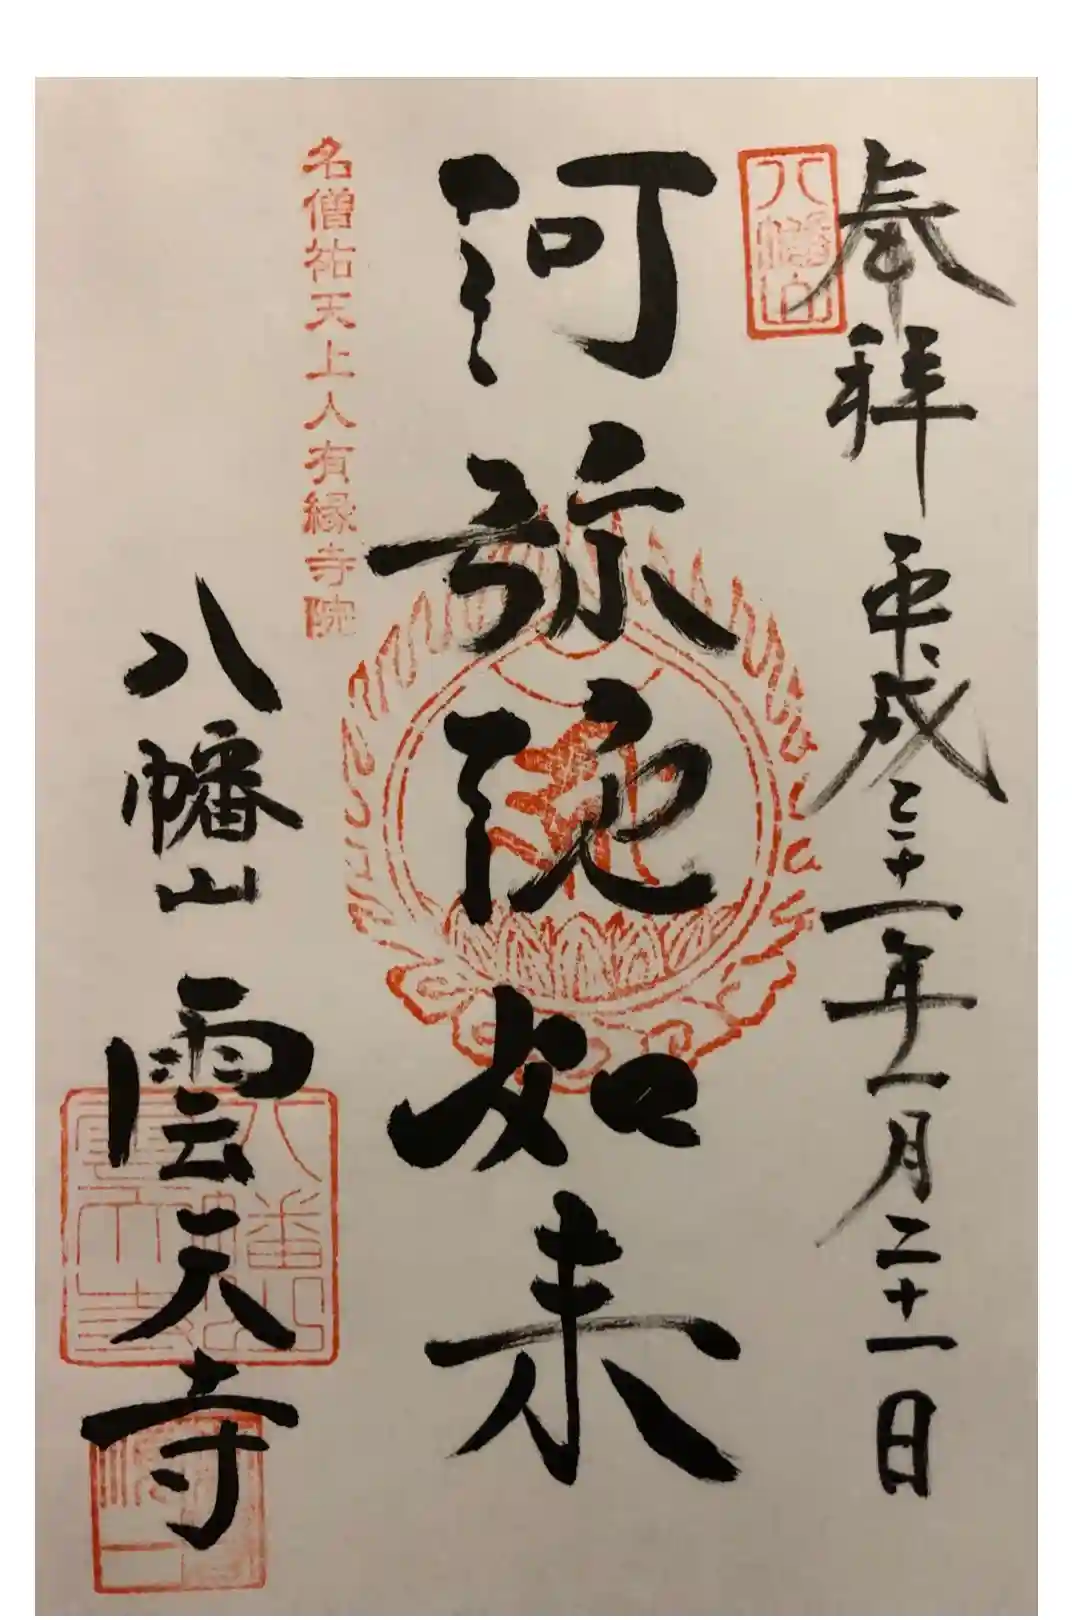 奉拝 平成三十一年一月二十一日
八幡山
阿弥陀如来
名僧祐天上人有縁寺院
八幡山 雲天寺
八幡山
雲天寺